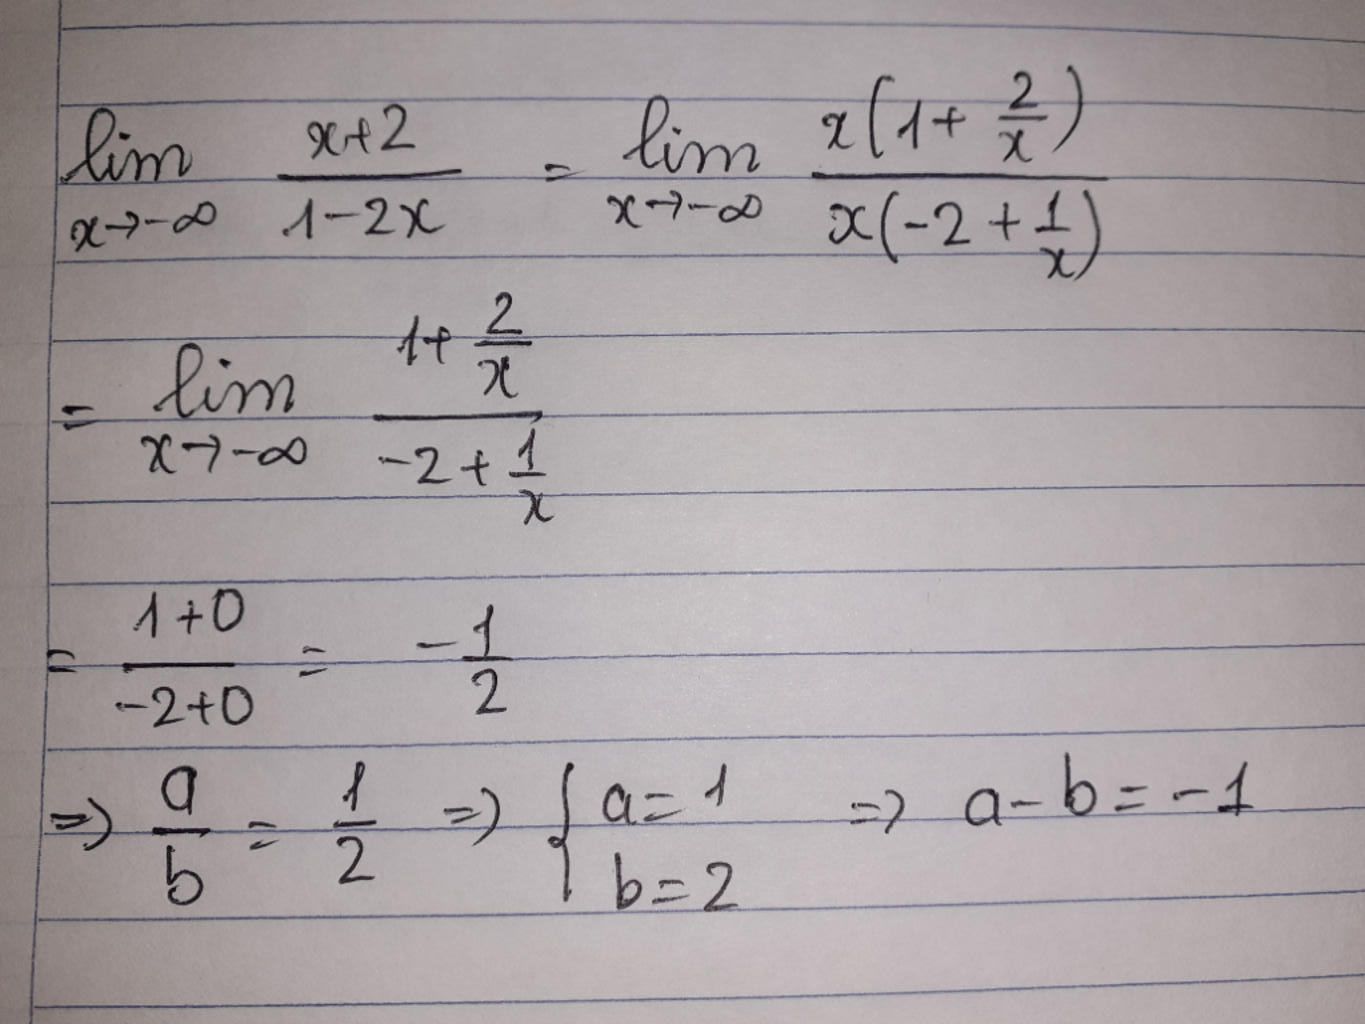 lim x→-∞ (x+2)/(1-2x) = lim x→-∞ x(1+2/x)/x(-2+1/x)
= lim x→-∞ (1+2/x)/(-2+1/x)
= (1+0)/(-2+0) = -1/2
=> a/b = 1/2 => { a=1 b=2 => a-b=-1